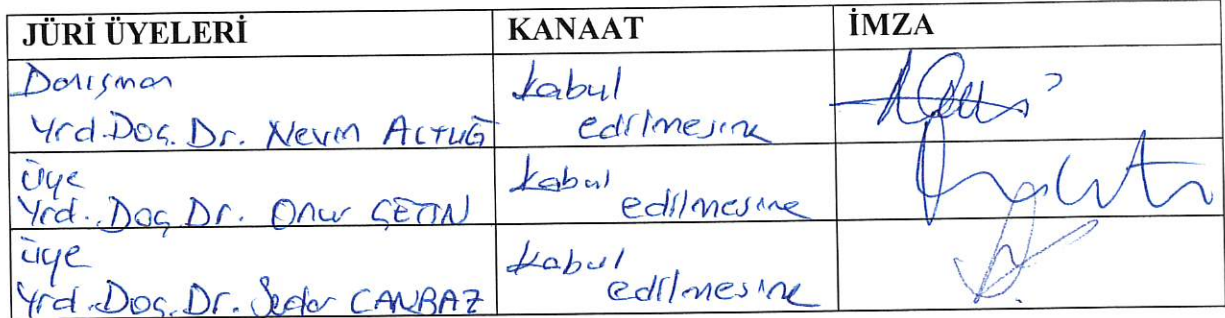 JÜRİ ÜYELERİ KANAAT İMZA
Danışman
Yrd.Doç.Dr. Nevin ALTUĞ
kabul
edilmesine
üye
Yrd.Doç.Dr. Onur ÇETİN
kabul
edilmesine
üye
Yrd.Doç.Dr. Sedar CANBAZ
kabul
edilmesine